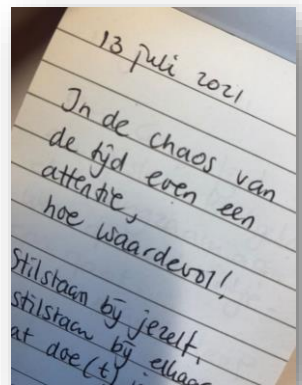 13 juli 2021
In de chaos van
de tijd even een
attentie,
hoe waardevol!,
Stilstaan bij jezelf,
stilstaan bij
at doe(t)